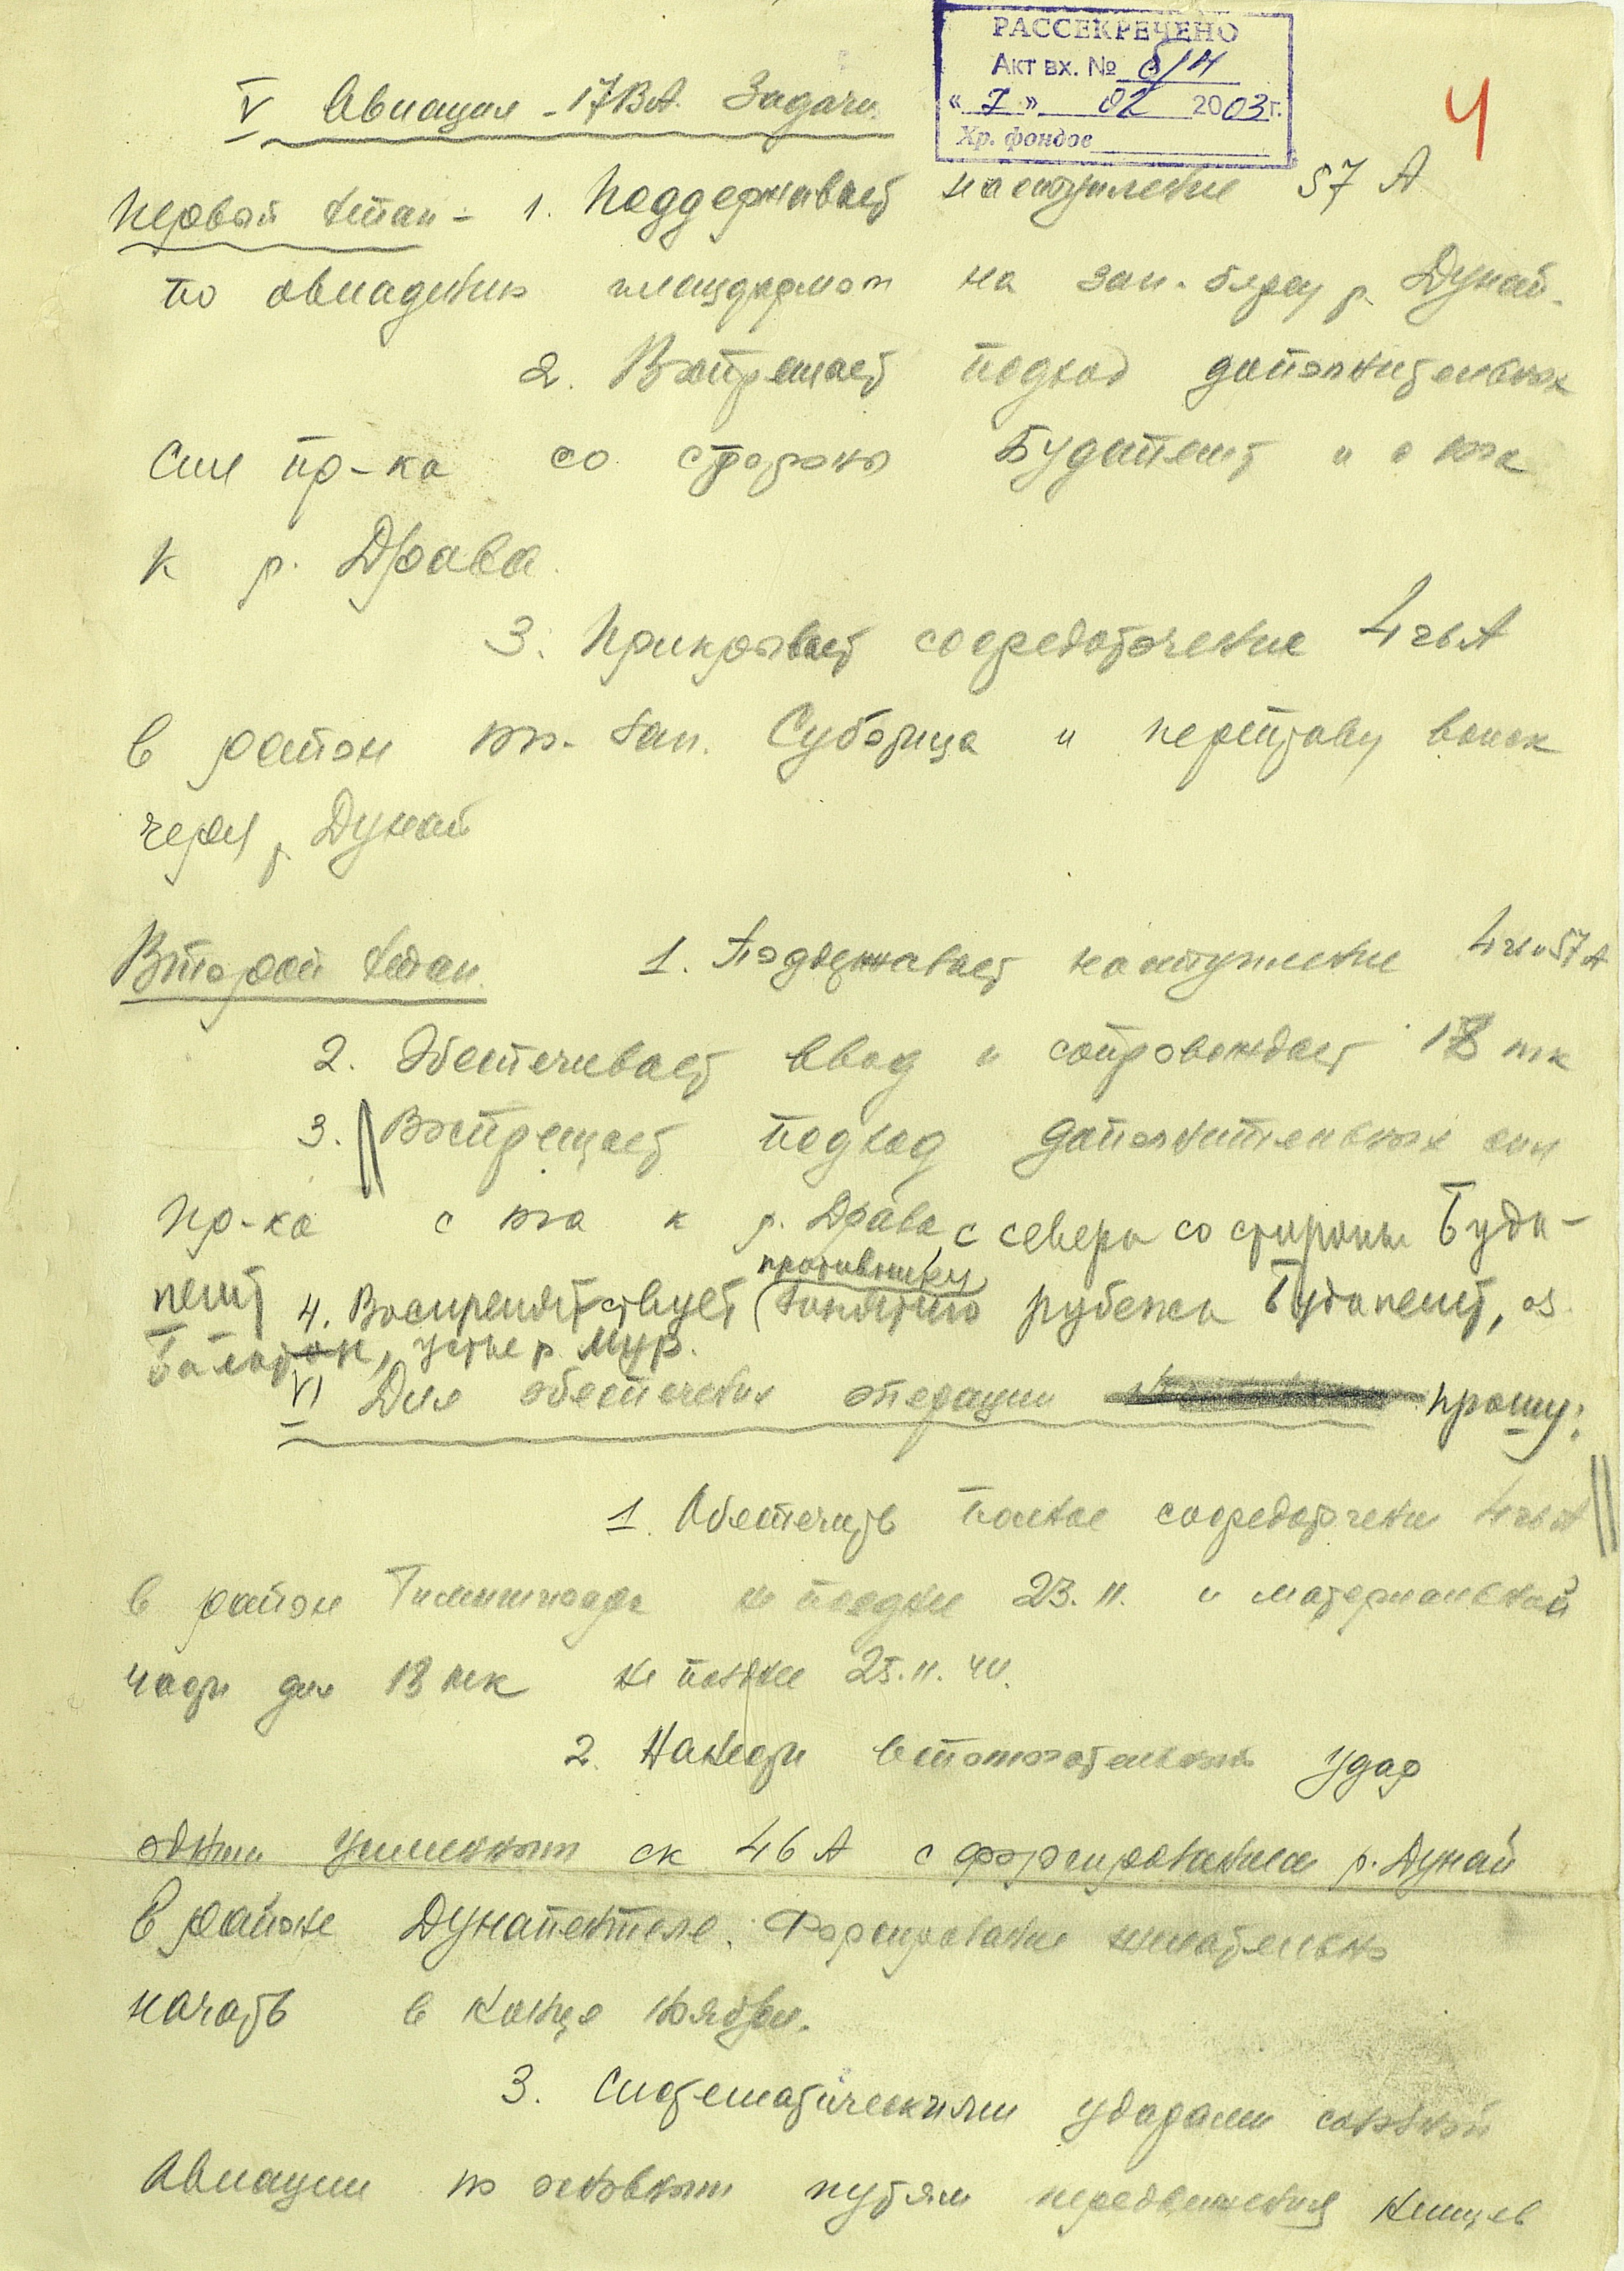 РАССЕКРЕЧЕНО
Акт вх. № б/н
« 7 » 02 2003г.
Хр. фондов
4
V Авиация - 17 ВА. Задачи.
Первый этап - 1. Поддерживает наступление 57 А
по овладению плацдармом на зап. берегу р. Дунай.
2. Воспрещает подход дополнительных
сил пр-ка со стороны Будапешт и с юга
к р. Драва.
3. Прикрывает сосредоточение 4 гв А
в районе юго-зап. Суботица и переправу войск
через р. Дунай
Второй этап. 1. Поддерживает наступление 4 гв и 57 А
2. Обеспечивает ввод и сопровождает 18 тк
3. Воспрещает подход дополнительных сил
пр-ка с юга к р. Драва, с севера со стороны Буда-
пешт 4. Воспрепятствует противнику занятию рубежа Будапешт, оз.
Балатон, устье р. Мур.
VI Для обеспечения операции прошу:
1. Обеспечить полное сосредоточение 4 гв А
в районе Тимишоара не позднее 23.11. и материальной
части для 18 тк не позднее 25.11.44.
2. Нанести вспомогательный удар
одним усиленным ск 46 А с форсированием р. Дунай
в районе Дунапентеле. Форсирование желательно
начать в конце ноября.
3. Систематическими ударами союзной
авиации по основным путям передвижения немцев